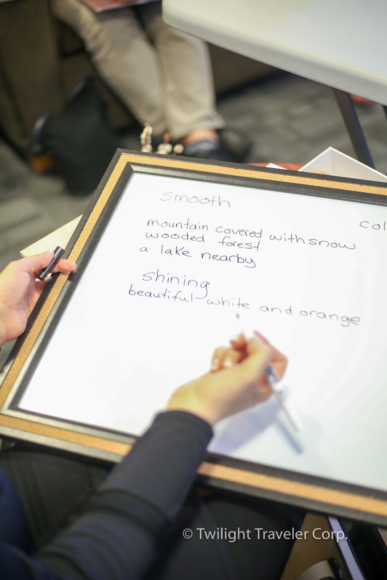 smooth
Col
mountain covered with snow
wooded forest
a lake nearby
shining
beautiful white and orange
© Twilight Traveler Corp.